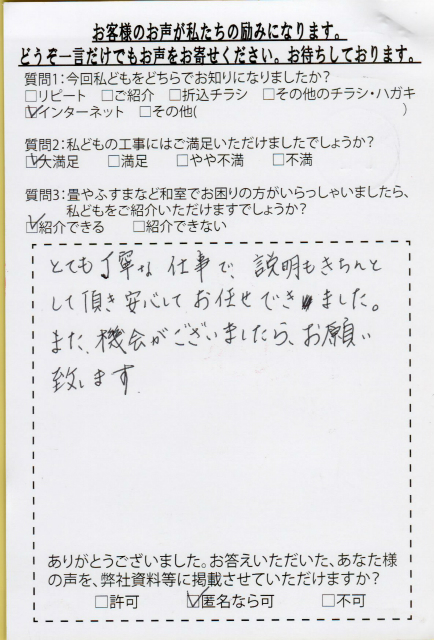 お客様のお声が私たちの励みになります。
どうぞ一言だけでもお声をお寄せください。お待ちしております。
質問1：今回私どもをどちらでお知りになりましたか？
□リピート　□ご紹介　□折込チラシ　□その他のチラシ・ハガキ
☑インターネット　□その他(　　　　　　　　　　)
質問2：私どもの工事にはご満足いただけましたでしょうか？
☑大満足　□満足　□やや不満　□不満
質問3：畳やふすまなど和室でお困りの方がいらっしゃいましたら、
私どもをご紹介いただけますでしょうか？
☑紹介できる　□紹介できない
とても丁寧な仕事で、説明もきちんと
して頂き安心してお任せできました。
また、機会がございましたら、お願い
致します
ありがとうございました。お答えいただいた、あなた様
の声を、弊社資料等に掲載させていただけますか？
□許可　☑匿名なら可　□不可